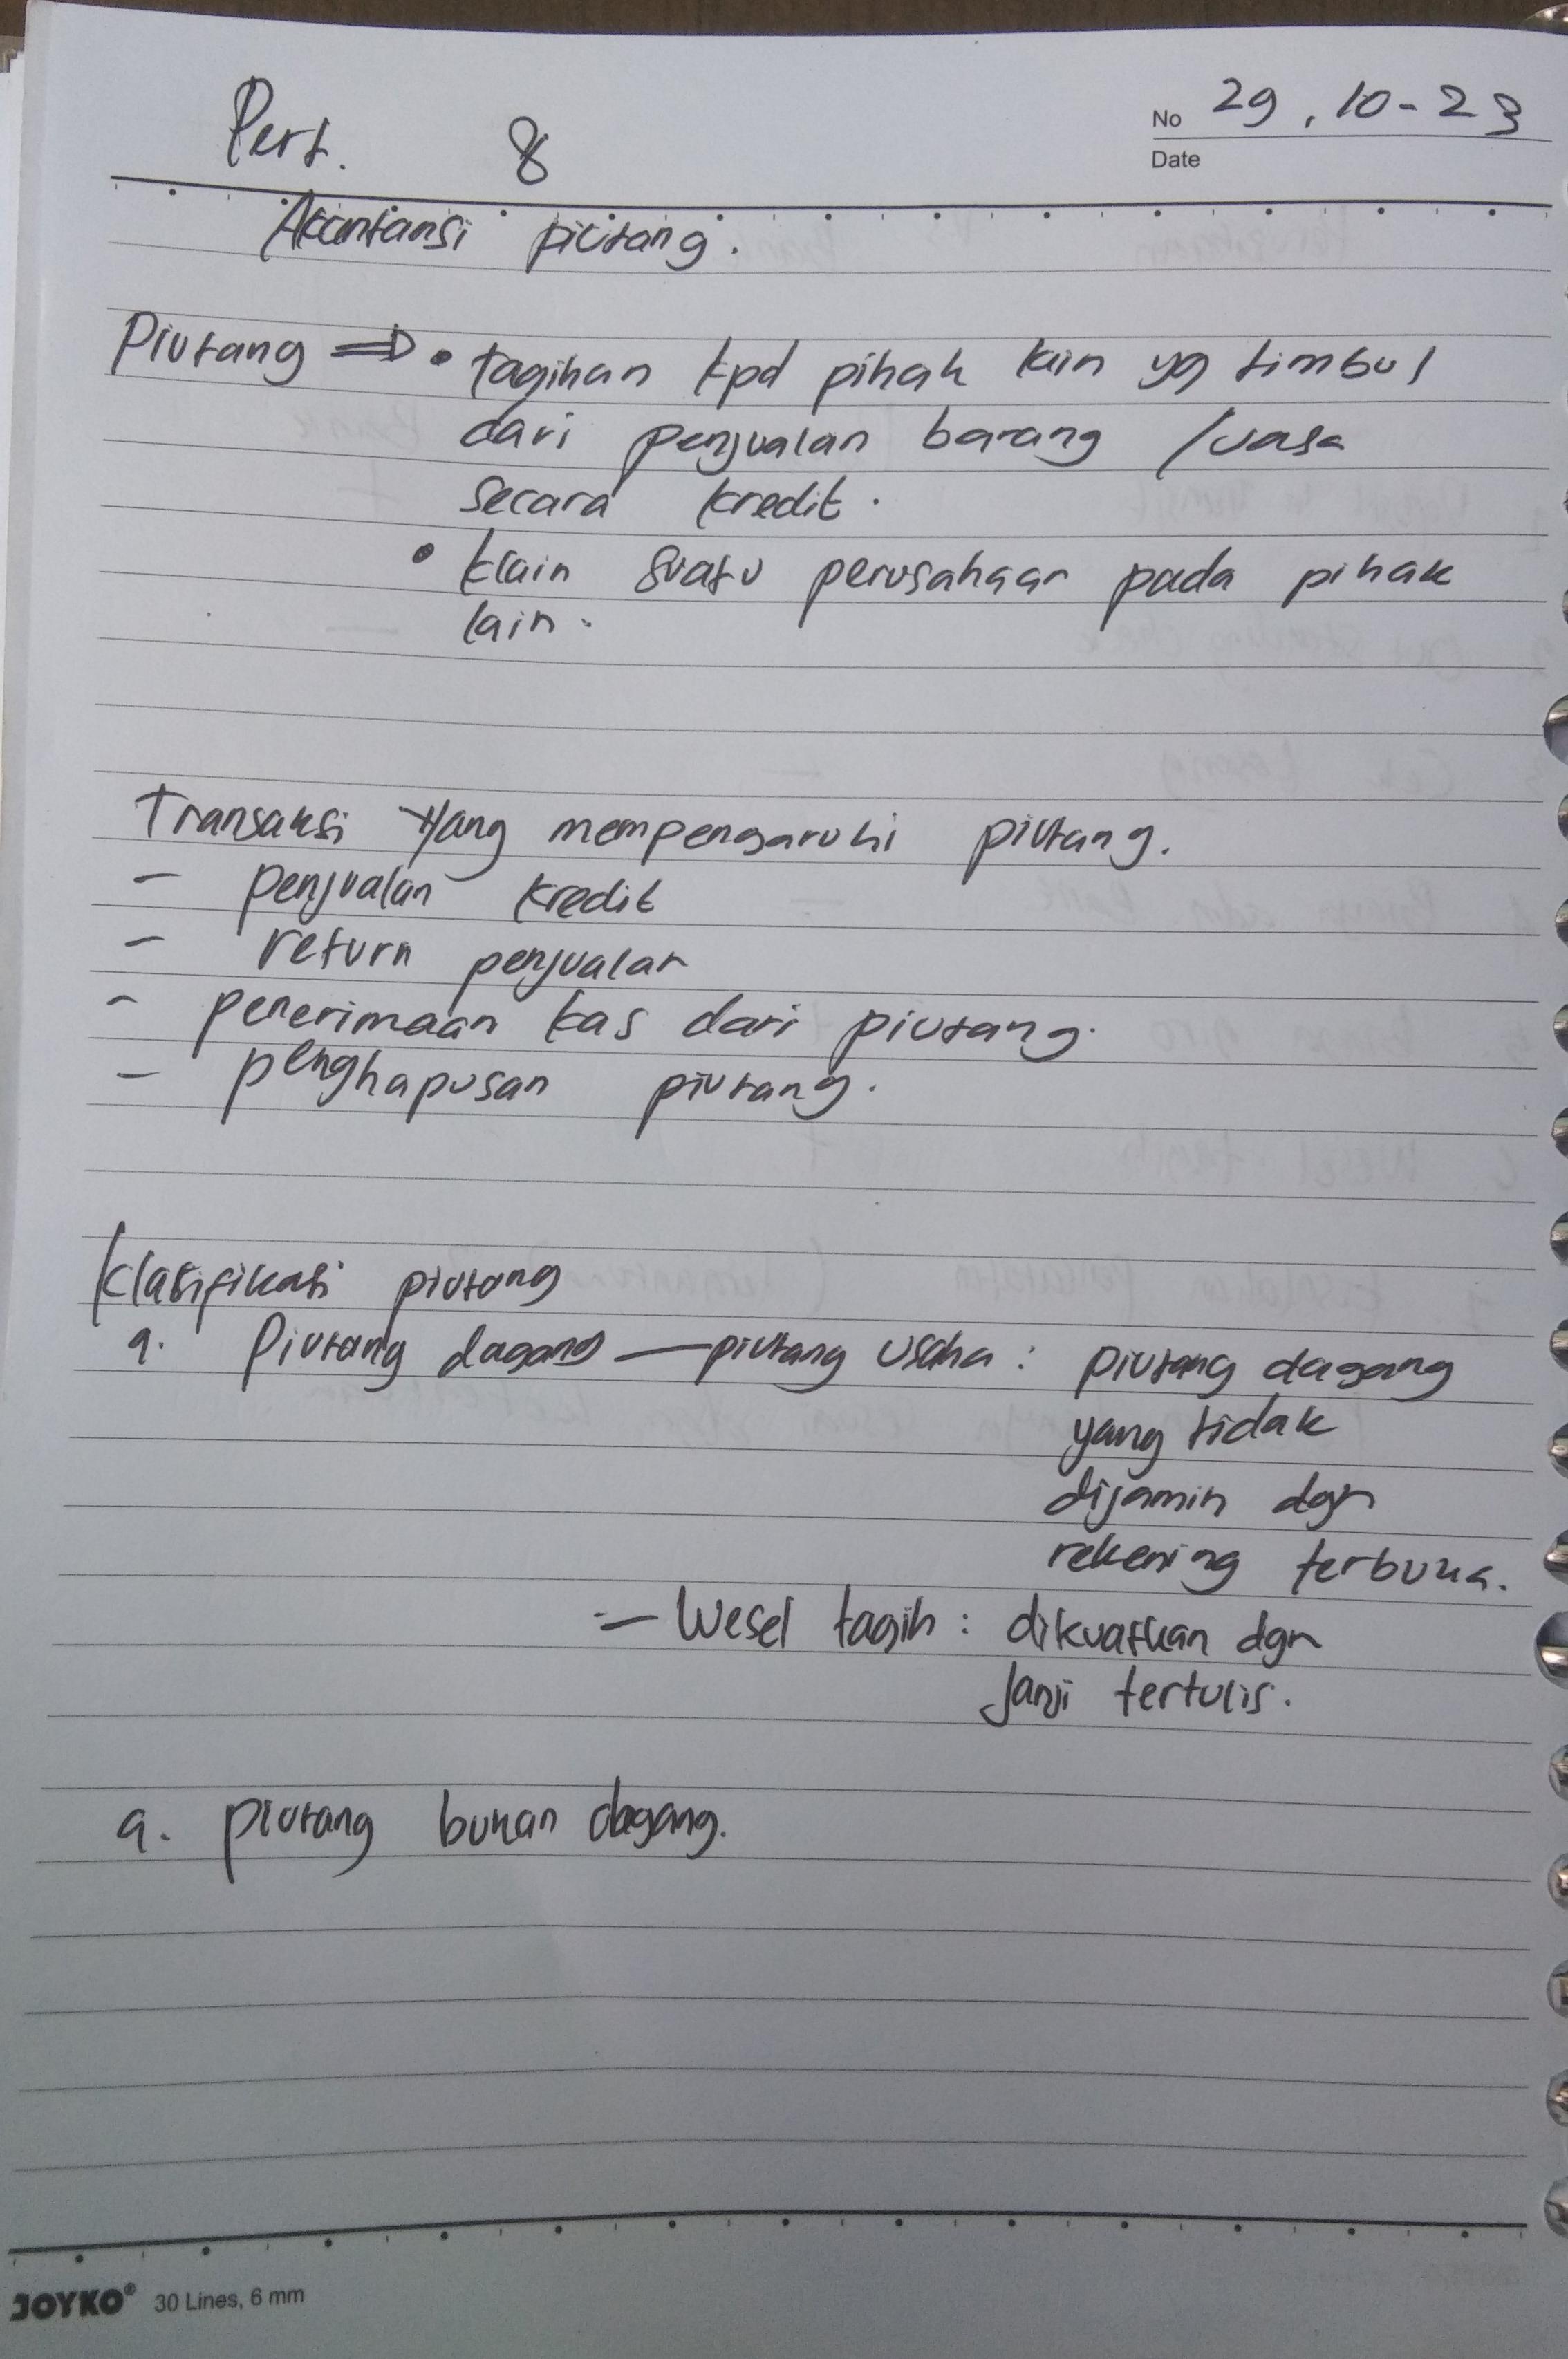 Pert. 8
No 29, 10-23
Date
Akuntansi piutang.
Piutang ⇒ • tagihan kpd pihak lain yg timbul
dari penjualan barang /jasa
secara kredit.
• klain suatu perusahaan pada pihak
lain.
Transaksi Yang mempengaruhi piutang.
- penjualan kredit
- return penjualan
- penerimaan kas dari piutang.
- penghapusan piutang.
Klasifikasi piutang
a. Piutang dagang — piutang usaha : piutang dagang
yang tidak
dijamin dgn
rekening terbuka.
- Wesel tagih : dikuatkan dgn
janji tertulis.
a. piutang bukan dagang.
JOYKO® 30 Lines, 6 mm